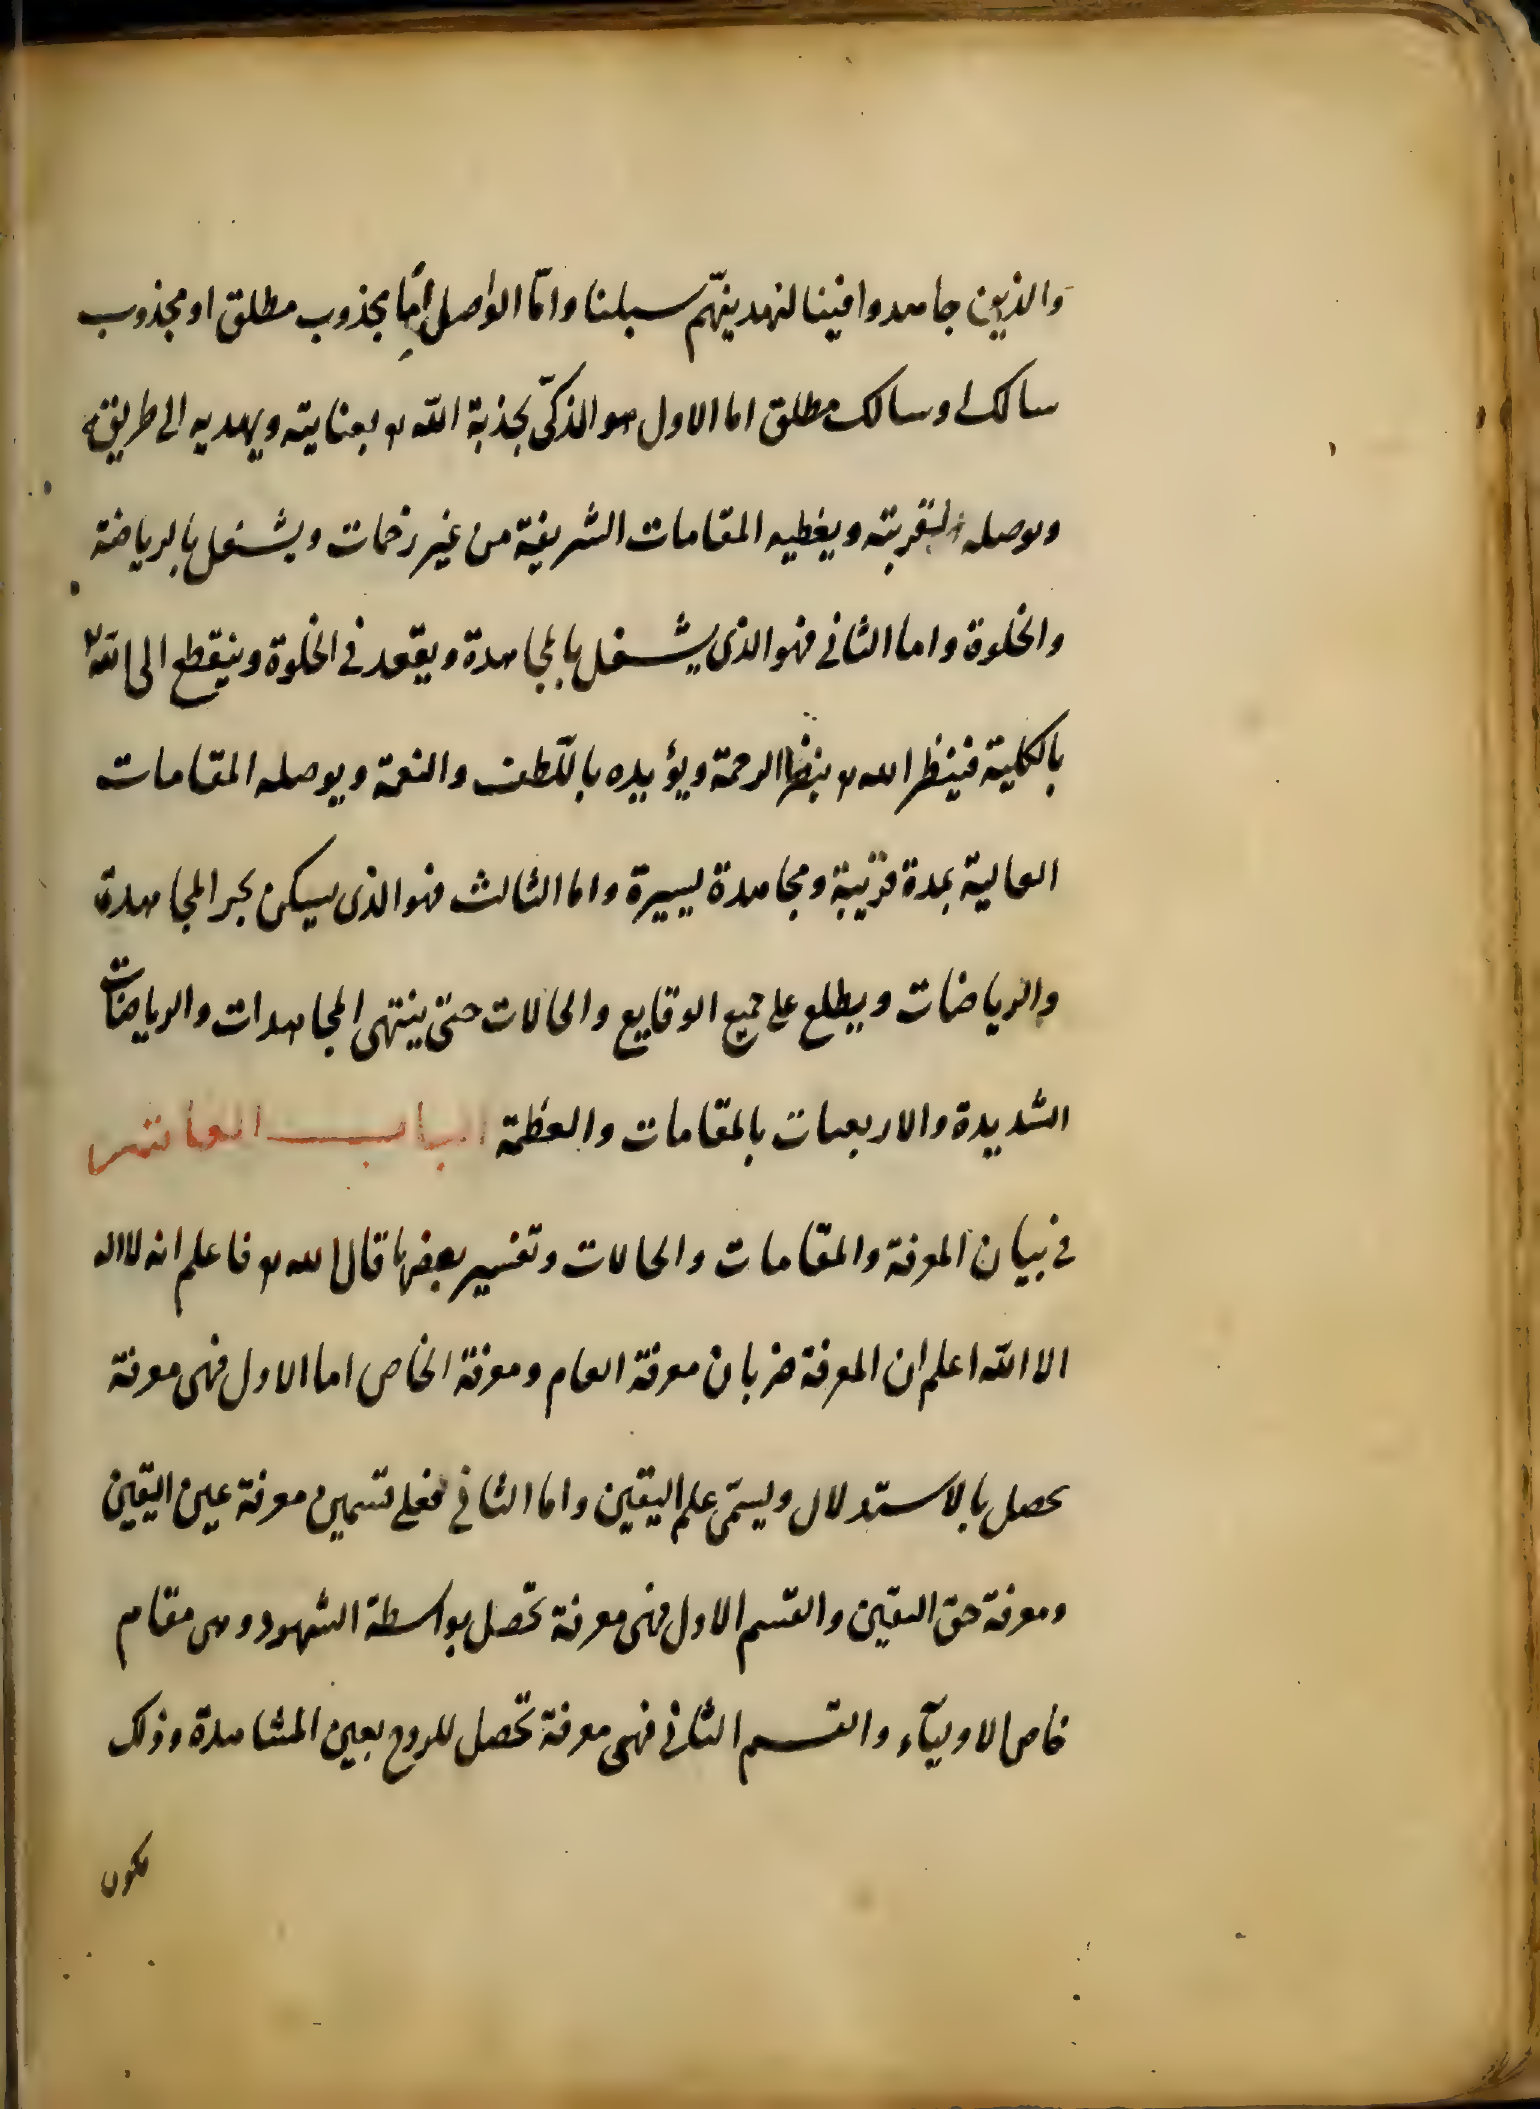 والذين جاهدوا فينا لنهدينهم سبلنا وامّا الواصل امّا مجذوب مطلق او مجذوب
سالك او سالك مطلق اما الاول هو الذى بجذبة الله بعنايته ويهديه الى طريق
ويوصله لقربته ويعطيه المقامات الشريفة من غير زحمات ويشغل بالرياضة
والخلوة واما الثانى فهو الذى يشغل بالمجاهدة ويقعد فى الخلوة وينقطع الى الله
بالكلية فينظر الله بنظر الرحمة ويؤيده باللّطف والنعمة ويوصله المقامات
العالية بمدة قريبة ومجاهدة يسيرة واما الثالث فهو الذى يسكن بحر المجاهدة
والرياضات ويطلع على جميع الوقايع والحالات حتى ينتهى المجاهدات والرياضات
الشديدة والاربعينات بالمقامات والعظمة الباب العاشر
فى بيان المعرفة والمقامات والحالات وتفسير بعضها قال الله فاعلم انه لا اله
الا الله اعلم ان المعرفة ضربان معرفة العام ومعرفة الخاص اما الاول فهى معرفة
تحصل بالاستدلال ويسمّى علم اليقين واما الثانى فعلى قسمين معرفة عين اليقين
ومعرفة حق اليقين والقسم الاول فهى معرفة تحصل بواسطة الشهود وهى مقام
خاص الاوليآء والقسم الثانى فهى معرفة تحصل للروح بعين المشاهدة وذلك
يكون